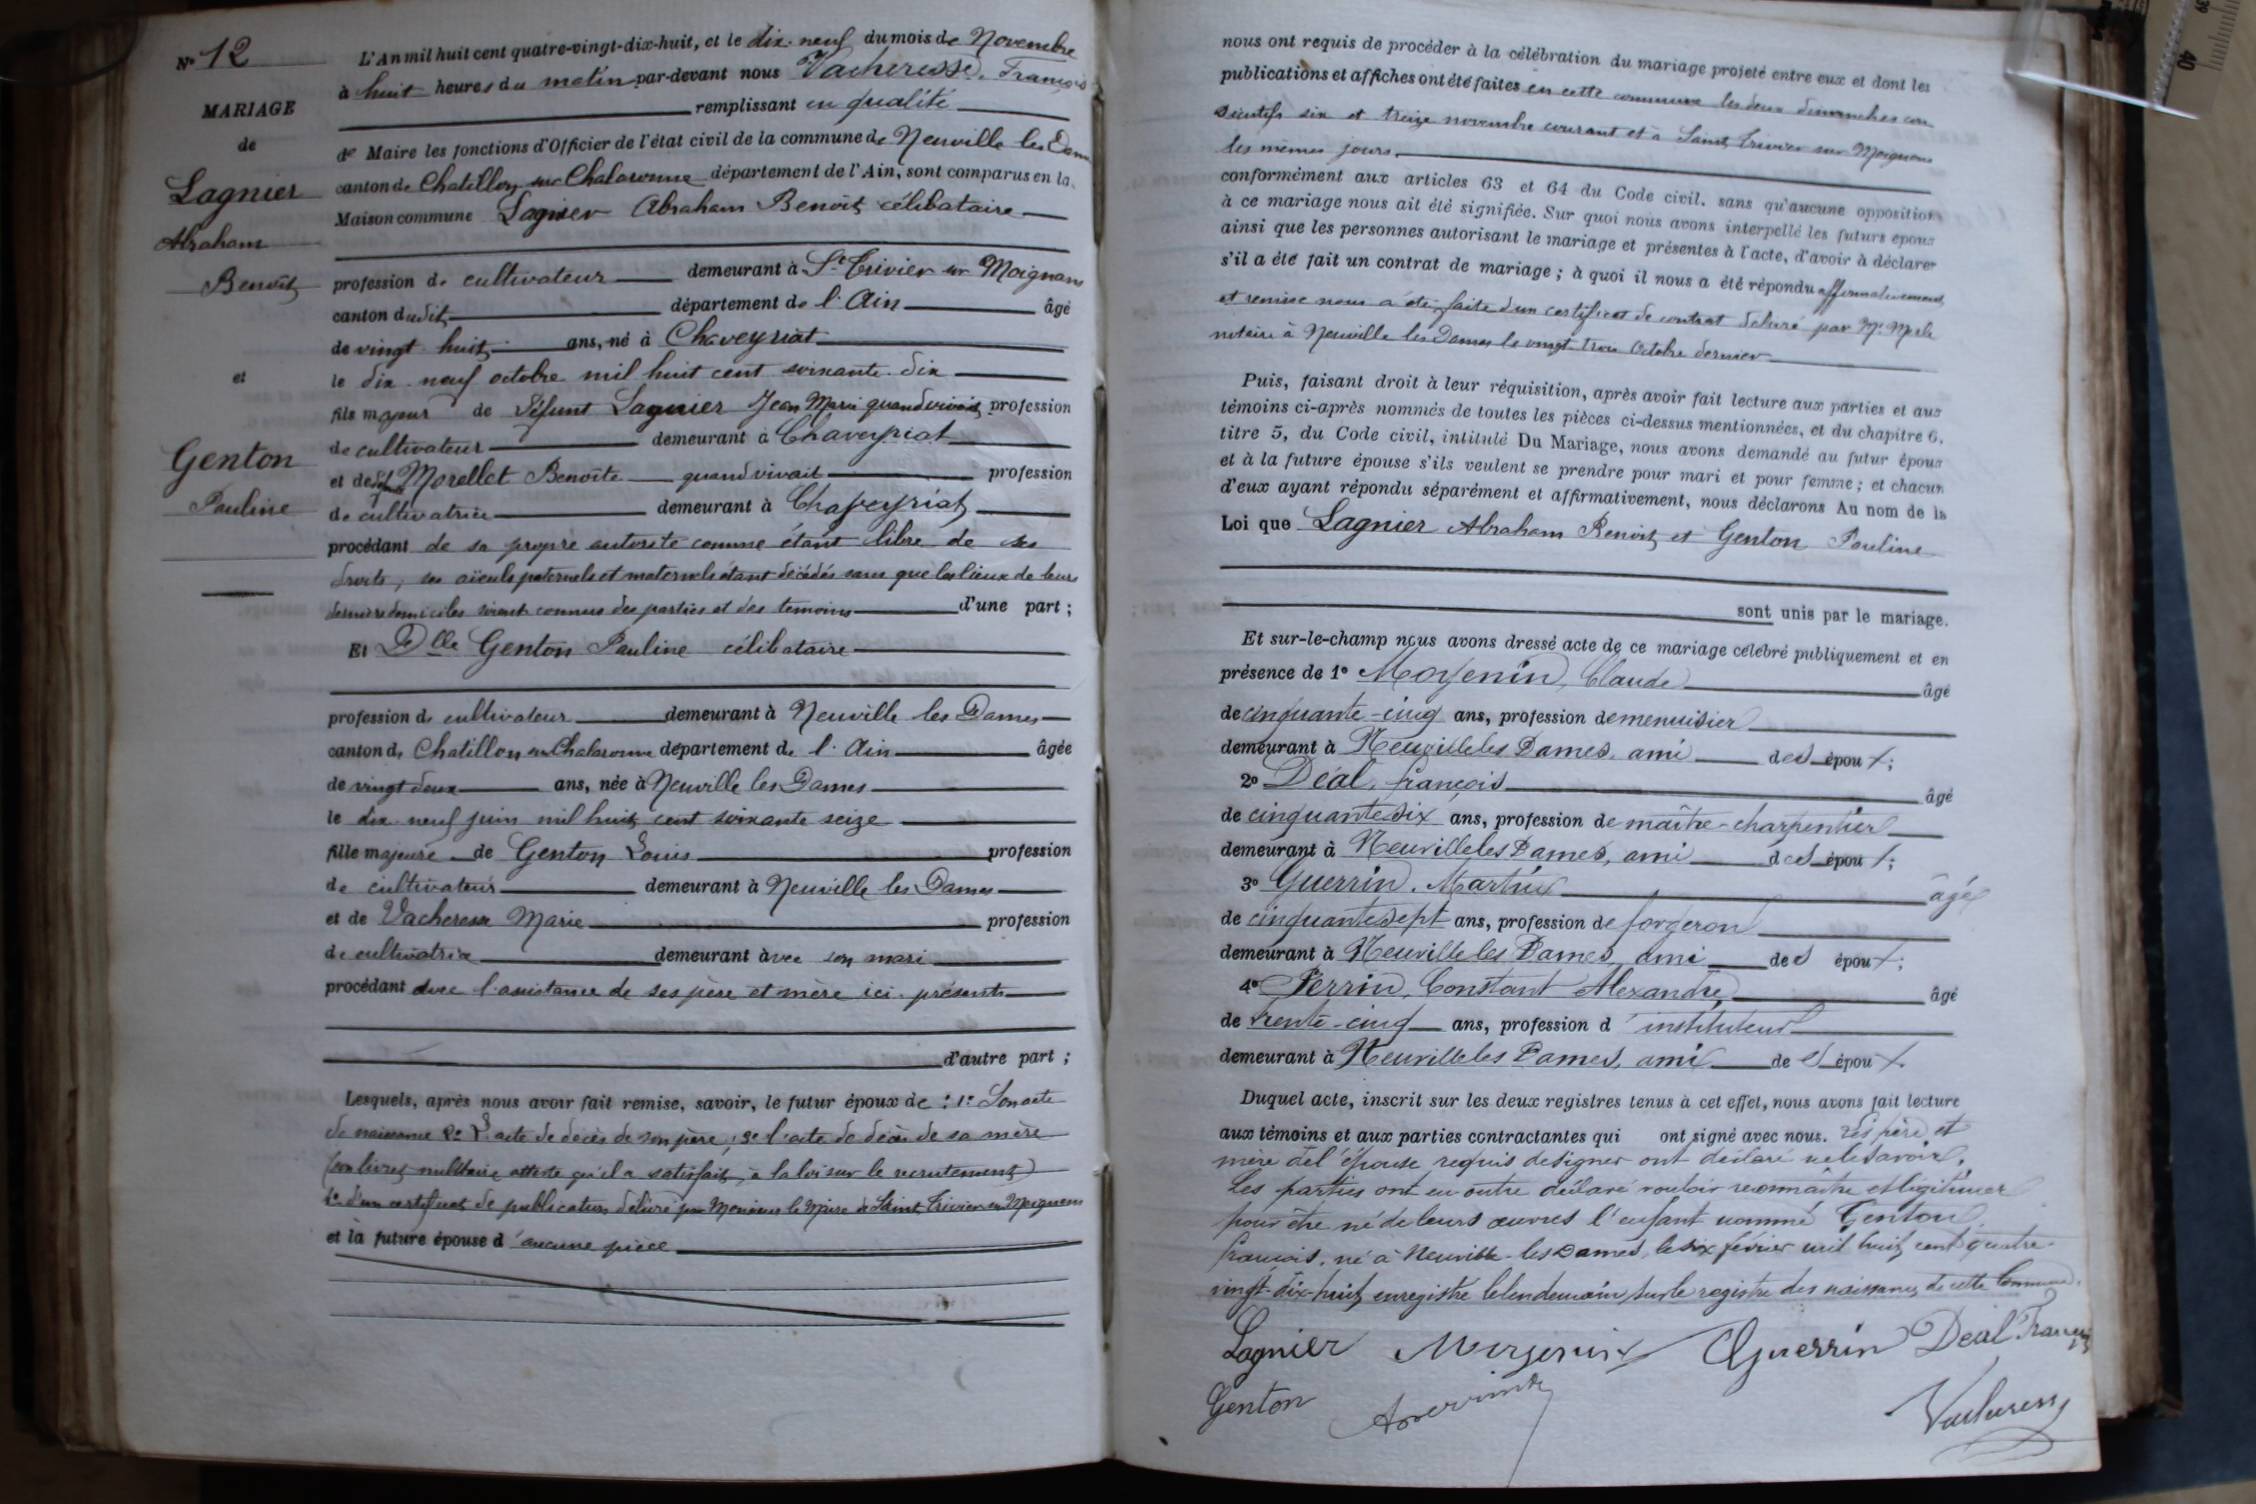 No 12
MARIAGE
de
Lagnier
Abraham
Benoît
et
Genton
Pauline
L'An mil huit cent quatre-vingt-dix-huit, et le dix-neuf du mois de Novembre
à huit heures du matin par-devant nous Vacheresse, François
remplissant en qualité
de Maire les fonctions d'Officier de l'état civil de la commune de Neuville les Dames
canton de Chatillon sur Chalaronne département de l'Ain, sont comparus en la
Maison commune Lagnier Abraham Benoît célibataire
profession de cultivateur demeurant à St Trivier sur Moignans
canton dudit département de l'Ain âgé
de vingt-huit ans, né à Chaveyriat
le dix-neuf octobre mil huit cent soixante-dix
fils majeur de défunt Lagnier Jean Marie quand vivait profession
de cultivateur demeurant à Chaveyriat
et de Morellet Benoîte quand vivait profession
de cultivatrice demeurant à Chaveyriat
procédant de sa propre autorité comme étant libre de ses
droits, ses aïeuls paternels et maternels étant décédés sans que les lieux de leurs
derniers domiciles soient connus des parties et des témoins d'une part ;
Et Dlle Genton Pauline célibataire
profession de cultivateur demeurant à Neuville les Dames
canton de Chatillon sur Chalaronne département de l'Ain âgée
de vingt deux ans, née à Neuville les Dames
le dix-neuf juin mil huit cent soixante seize
fille majeure de Genton Louis profession
de cultivateur demeurant à Neuville les Dames
et de Vacheresse Marie profession
de cultivatrice demeurant avec son mari
procédant avec l'assistance de ses père et mère ici présents
d'autre part ;
Lesquels, après nous avoir fait remise, savoir, le futur époux de : 1° Son acte
de naissance 2° L'acte de décès de son père ; 3° l'acte de décès de sa mère
(son livret militaire atteste qu'il a satisfait à la loi sur le recrutement)
4° d'un certificat de publication délivré par Monsieur le Maire de Saint Trivier sur Moignans
et la future épouse d'aucune pièce
nous ont requis de procéder à la célébration du mariage projeté entre eux et dont les
publications et affiches ont été faites en cette commune les deux dimanches con
sécutifs six et treize novembre courant et à Saint Trivier sur Moignans
les mêmes jours
conformément aux articles 63 et 64 du Code civil. sans qu'aucune opposition
à ce mariage nous ait été signifiée. Sur quoi nous avons interpellé les futurs époux
ainsi que les personnes autorisant le mariage et présentes à l'acte, d'avoir à déclarer
s'il a été fait un contrat de mariage ; à quoi il nous a été répondu affirmativement
et remise nous a été faite d'un certificat de contrat délivré par Me
notaire à Neuville les Dames le vingt-trois Octobre dernier
Puis, faisant droit à leur réquisition, après avoir fait lecture aux parties et aux
témoins ci-après nommés de toutes les pièces ci-dessus mentionnées, et du chapitre 6,
titre 5, du Code civil, intitulé Du Mariage, nous avons demandé au futur époux
et à la future épouse s'ils veulent se prendre pour mari et pour femme ; et chacun
d'eux ayant répondu séparément et affirmativement, nous déclarons Au nom de la
Loi que Lagnier Abraham Benoît et Genton Pauline
sont unis par le mariage.
Et sur-le-champ nous avons dressé acte de ce mariage célébré publiquement et en
présence de 1° Moyenin, Claude âgé
de cinquante-cinq ans, profession de menuisier
demeurant à Neuville les Dames, ami des époux ;
2° Déal, françois âgé
de cinquante six ans, profession de maître-charpentier
demeurant à Neuville les Dames, ami des époux ;
3° Guerrin, Martin âgé
de cinquante sept ans, profession de forgeron
demeurant à Neuville les Dames, ami des époux ;
4° Perrin, Constant Alexandre, âgé
de trente-cinq ans, profession d'instituteur
demeurant à Neuville les Dames, ami des époux.
Duquel acte, inscrit sur les deux registres tenus à cet effet, nous avons fait lecture
aux témoins et aux parties contractantes qui ont signé avec nous. Les père et
mère de l'épouse requis de signer ont déclaré ne le savoir.
Les parties ont en outre déclaré vouloir reconnaître et légitimer
pour être né de leurs œuvres l'enfant nommé Genton
françois, né à Neuville-les Dames, le six février mil huit cent quatre-
vingt-dix-huit, enregistré le lendemain sur le registre des naissances de cette Commune.
Lagnier Moyenin Guerrin Déal François
Genton Vacheresse